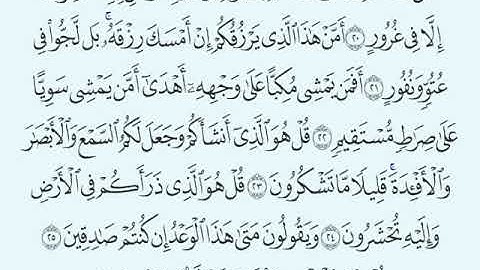 إِلَّا فِي غُرُورٍ ٢٠ أَمَّنْ هَٰذَا ٱلَّذِي يَرْزُقُكُمْ إِنْ أَمْسَكَ رِزْقَهُۥ ۚ بَل لَّجُّوا۟ فِي
عُتُوٍّ وَنُفُورٍ ٢١ أَفَمَن يَمْشِي مُكِبًّا عَلَىٰ وَجْهِهِۦٓ أَهْدَىٰٓ أَمَّن يَمْشِي سَوِيًّا
عَلَىٰ صِرَٰطٍ مُّسْتَقِيمٍ ٢٢ قُلْ هُوَ ٱلَّذِيٓ أَنشَأَكُمْ وَجَعَلَ لَكُمُ ٱلسَّمْعَ وَٱلْأَبْصَٰرَ
وَٱلْأَفْـِٔدَةَ ۖ قَلِيلًا مَّا تَشْكُرُونَ ٢٣ قُلْ هُوَ ٱلَّذِي ذَرَأَكُمْ فِي ٱلْأَرْضِ
وَإِلَيْهِ تُحْشَرُونَ ٢٤ وَيَقُولُونَ مَتَىٰ هَٰذَا ٱلْوَعْدُ إِن كُنتُمْ صَٰدِقِينَ ٢٥